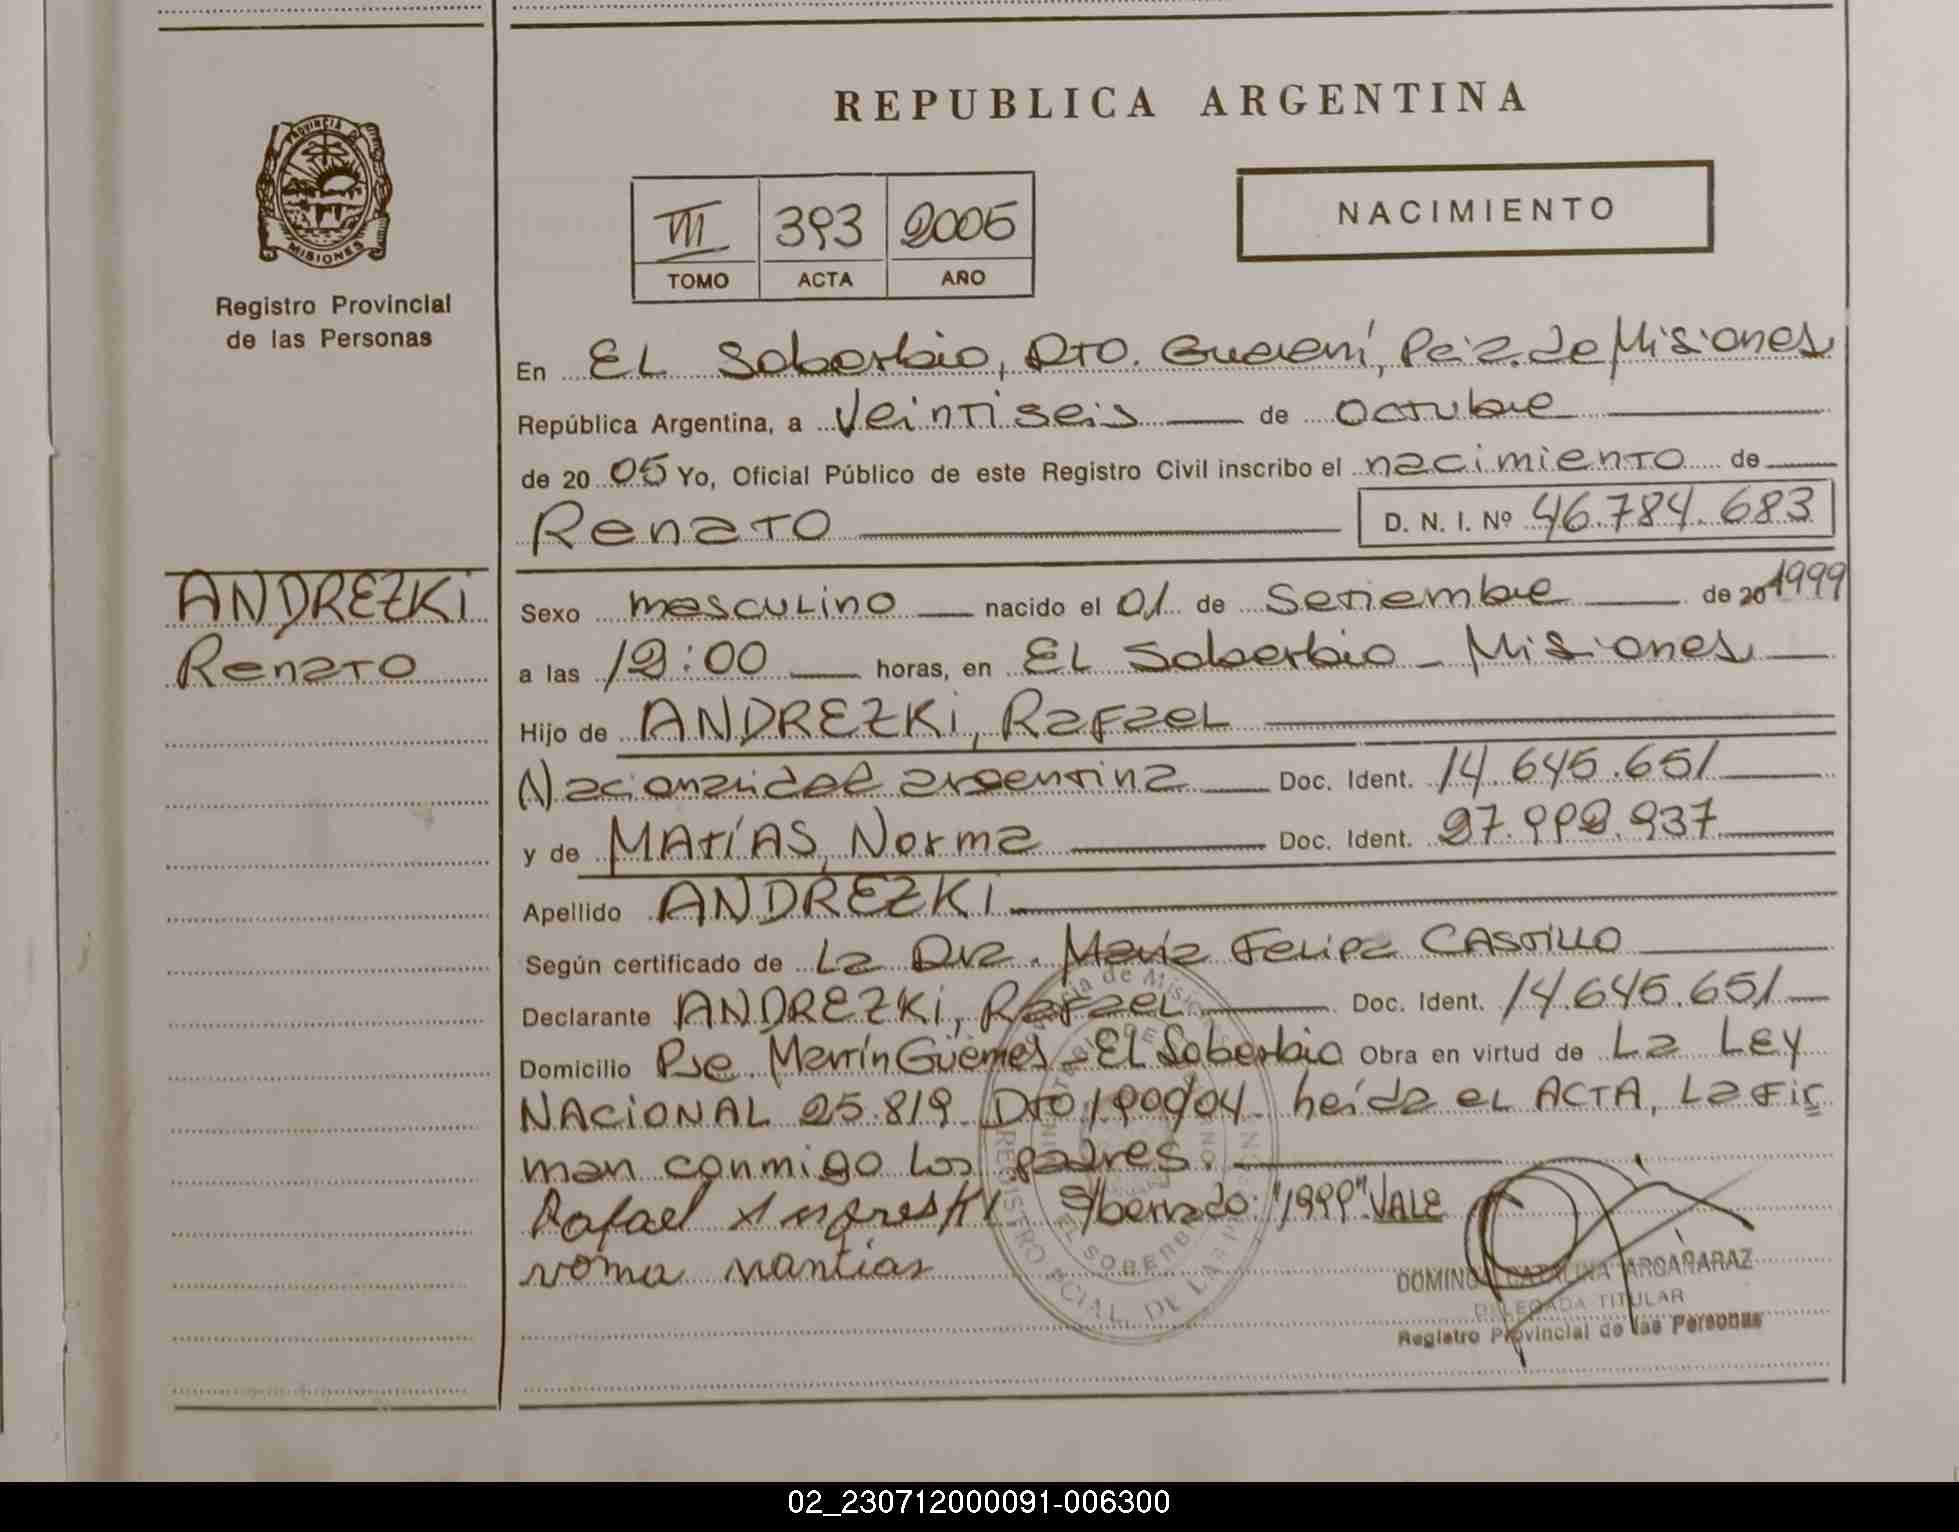 REPUBLICA ARGENTINA
PROVINCIA DE
MISIONES
Registro Provincial
de las Personas
III 393 2005
TOMO ACTA AÑO
NACIMIENTO
En EL Soberbio, DTO. Guaraní, Pcia. de Misiones
República Argentina, a Veintiseis de octubre
de 20 05 Yo, Oficial Público de este Registro Civil inscribo el nacimiento de
Renato D. N. I. Nº 46.784.683
ANDREZKI
Renato
Sexo masculino nacido el 01 de Setiembre de 20 1999
a las 12:00 horas, en EL Soberbio - Misiones
Hijo de ANDREZKI, Rafael
Nacionalidad argentina Doc. Ident. 14.645.651
y de MATÍAS, Norma Doc. Ident. 27.992.937
Apellido ANDREZKI
Según certificado de La Dra. María Felipa CASTILLO
Declarante ANDREZKI, Rafael Doc. Ident. 14.645.651
Domicilio Pje. Martín Güemes - EL Soberbio Obra en virtud de La Ley
NACIONAL 25.819 DTO. 190/04. Leída el ACTA, La fir
man conmigo los padres.
Rafael S/borrado: "1999" VALE
DOMINGA CATALINA ARGAÑARAZ
DELEGADA TITULAR
Registro Provincial de las Personas
02_230712000091-006300